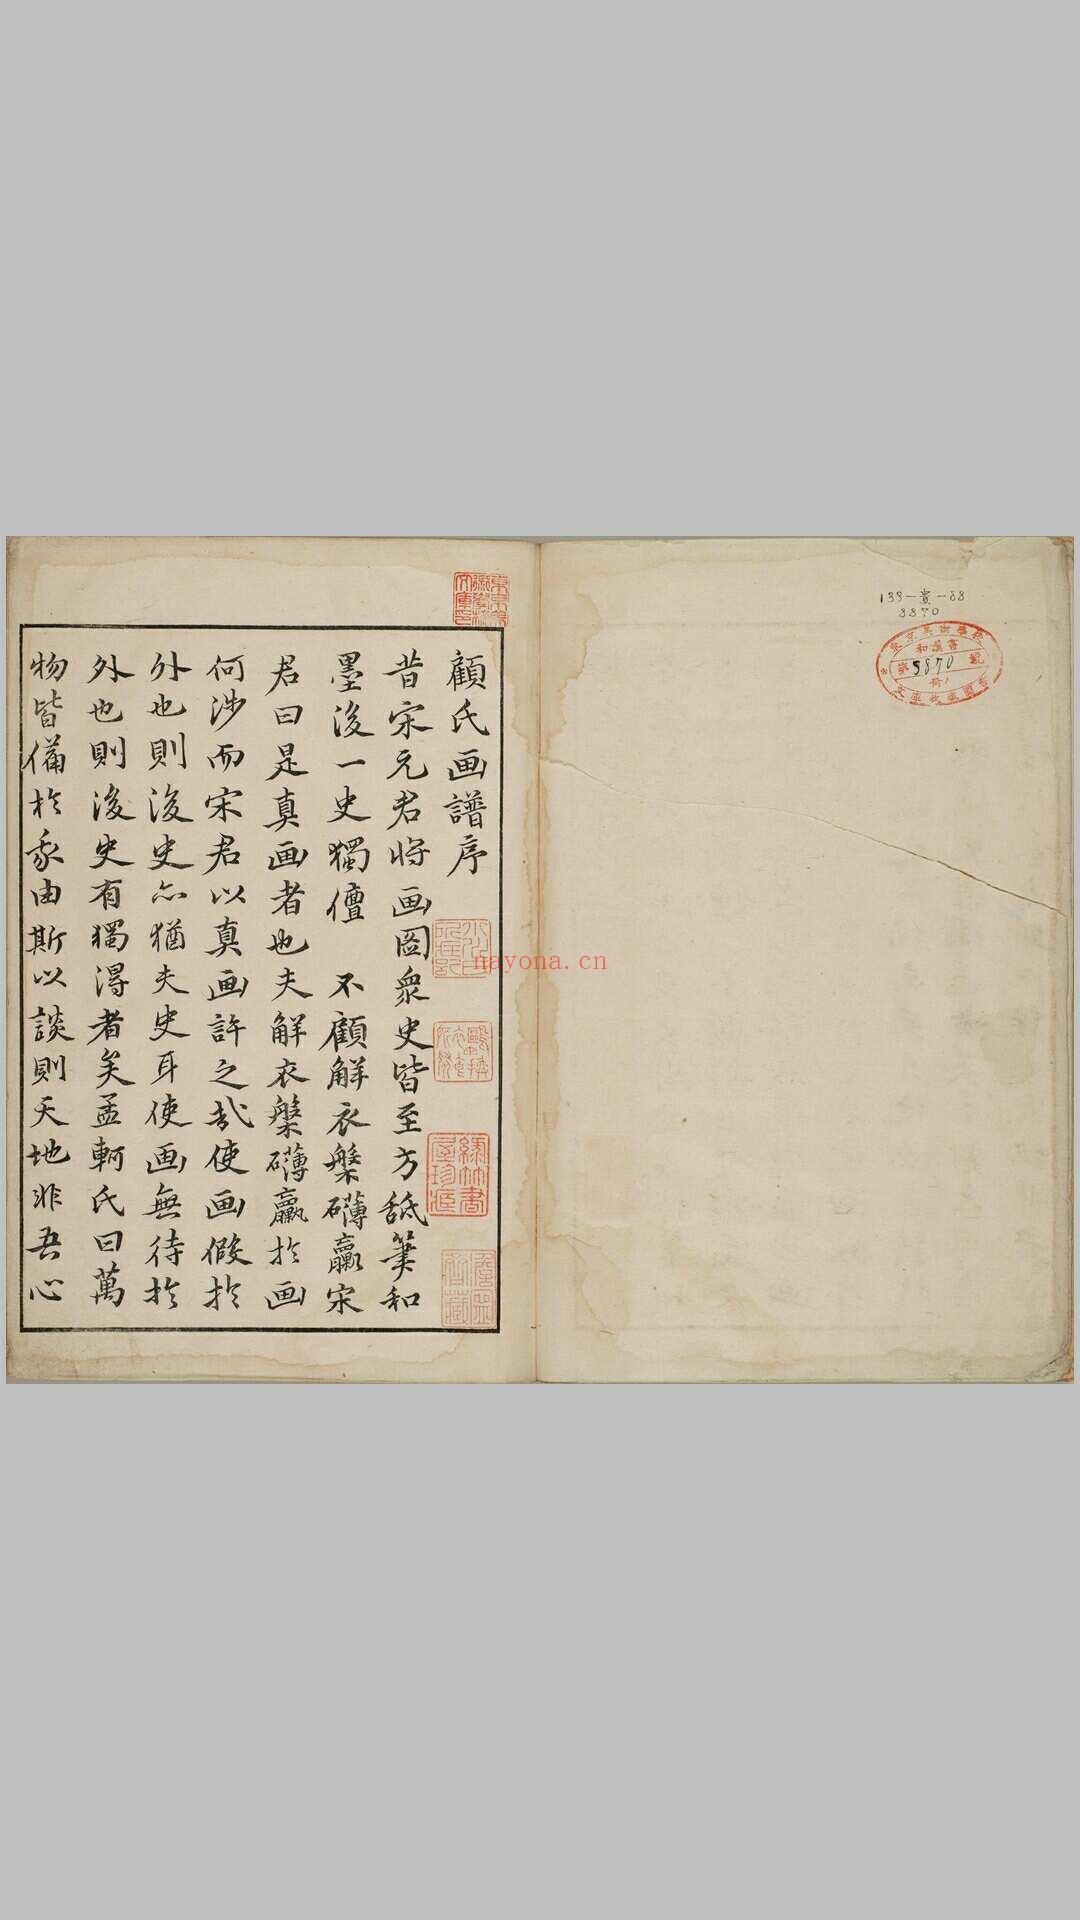 顧氏画譜序
昔宋元君将画圖衆史皆至方舐筆和
墨後一史獨儃 不顧解衣槃礴臝宋
君曰是真画者也夫解衣槃礴臝扵画
何渉而宋君以真画許之㢤使画假扵
外也則後史亦猶夫史耳使画無待扵
外也則後史有獨得者矣孟軻氏曰萬
物皆備扵我由斯以談則天地非吾心
139-貴-88
8870
和漢書
第 8870 號
nayona.cn